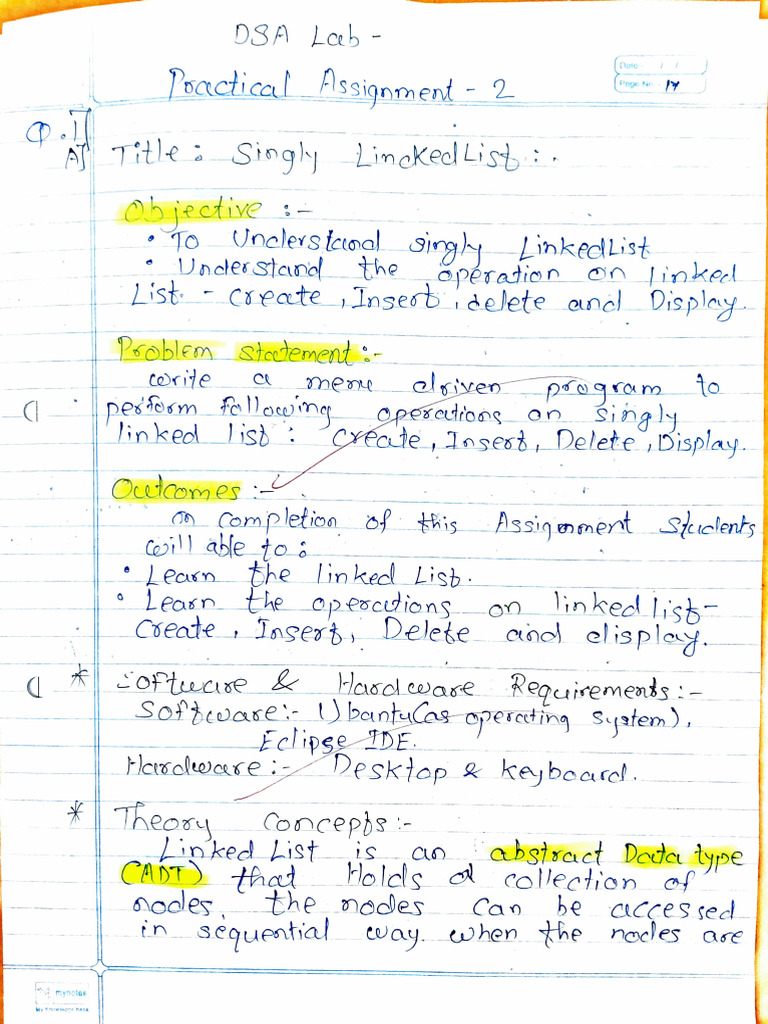 DSA Lab -
Practical Assignment - 2
Date : / /
Page No : 14
Q.1]
A] Title : Singly LinckedList :.
Objective :-
• To Understand singly LinkedList
• Understand the operation on linked
List - create, Insert, delete and Display.
Problem statement :-
write a menu driven program to
perform following operations on singly
linked list : Create, Insert, Delete, Display.
Outcomes :-
on completion of this Assignment students
will able to :
• Learn the linked List.
• Learn the operations on linked list-
Create, Insert, Delete and display.
* Software & Hardware Requirements :-
Software :- Ubantu(as operating system),
Eclipse IDE.
Hardware :- Desktop & keyboard.
* Theory Concepts :-
Linked List is an abstract Data type
(ADT) that Holds a collection of
nodes, the nodes can be accessed
in sequential way. when the nodes are
mynotes